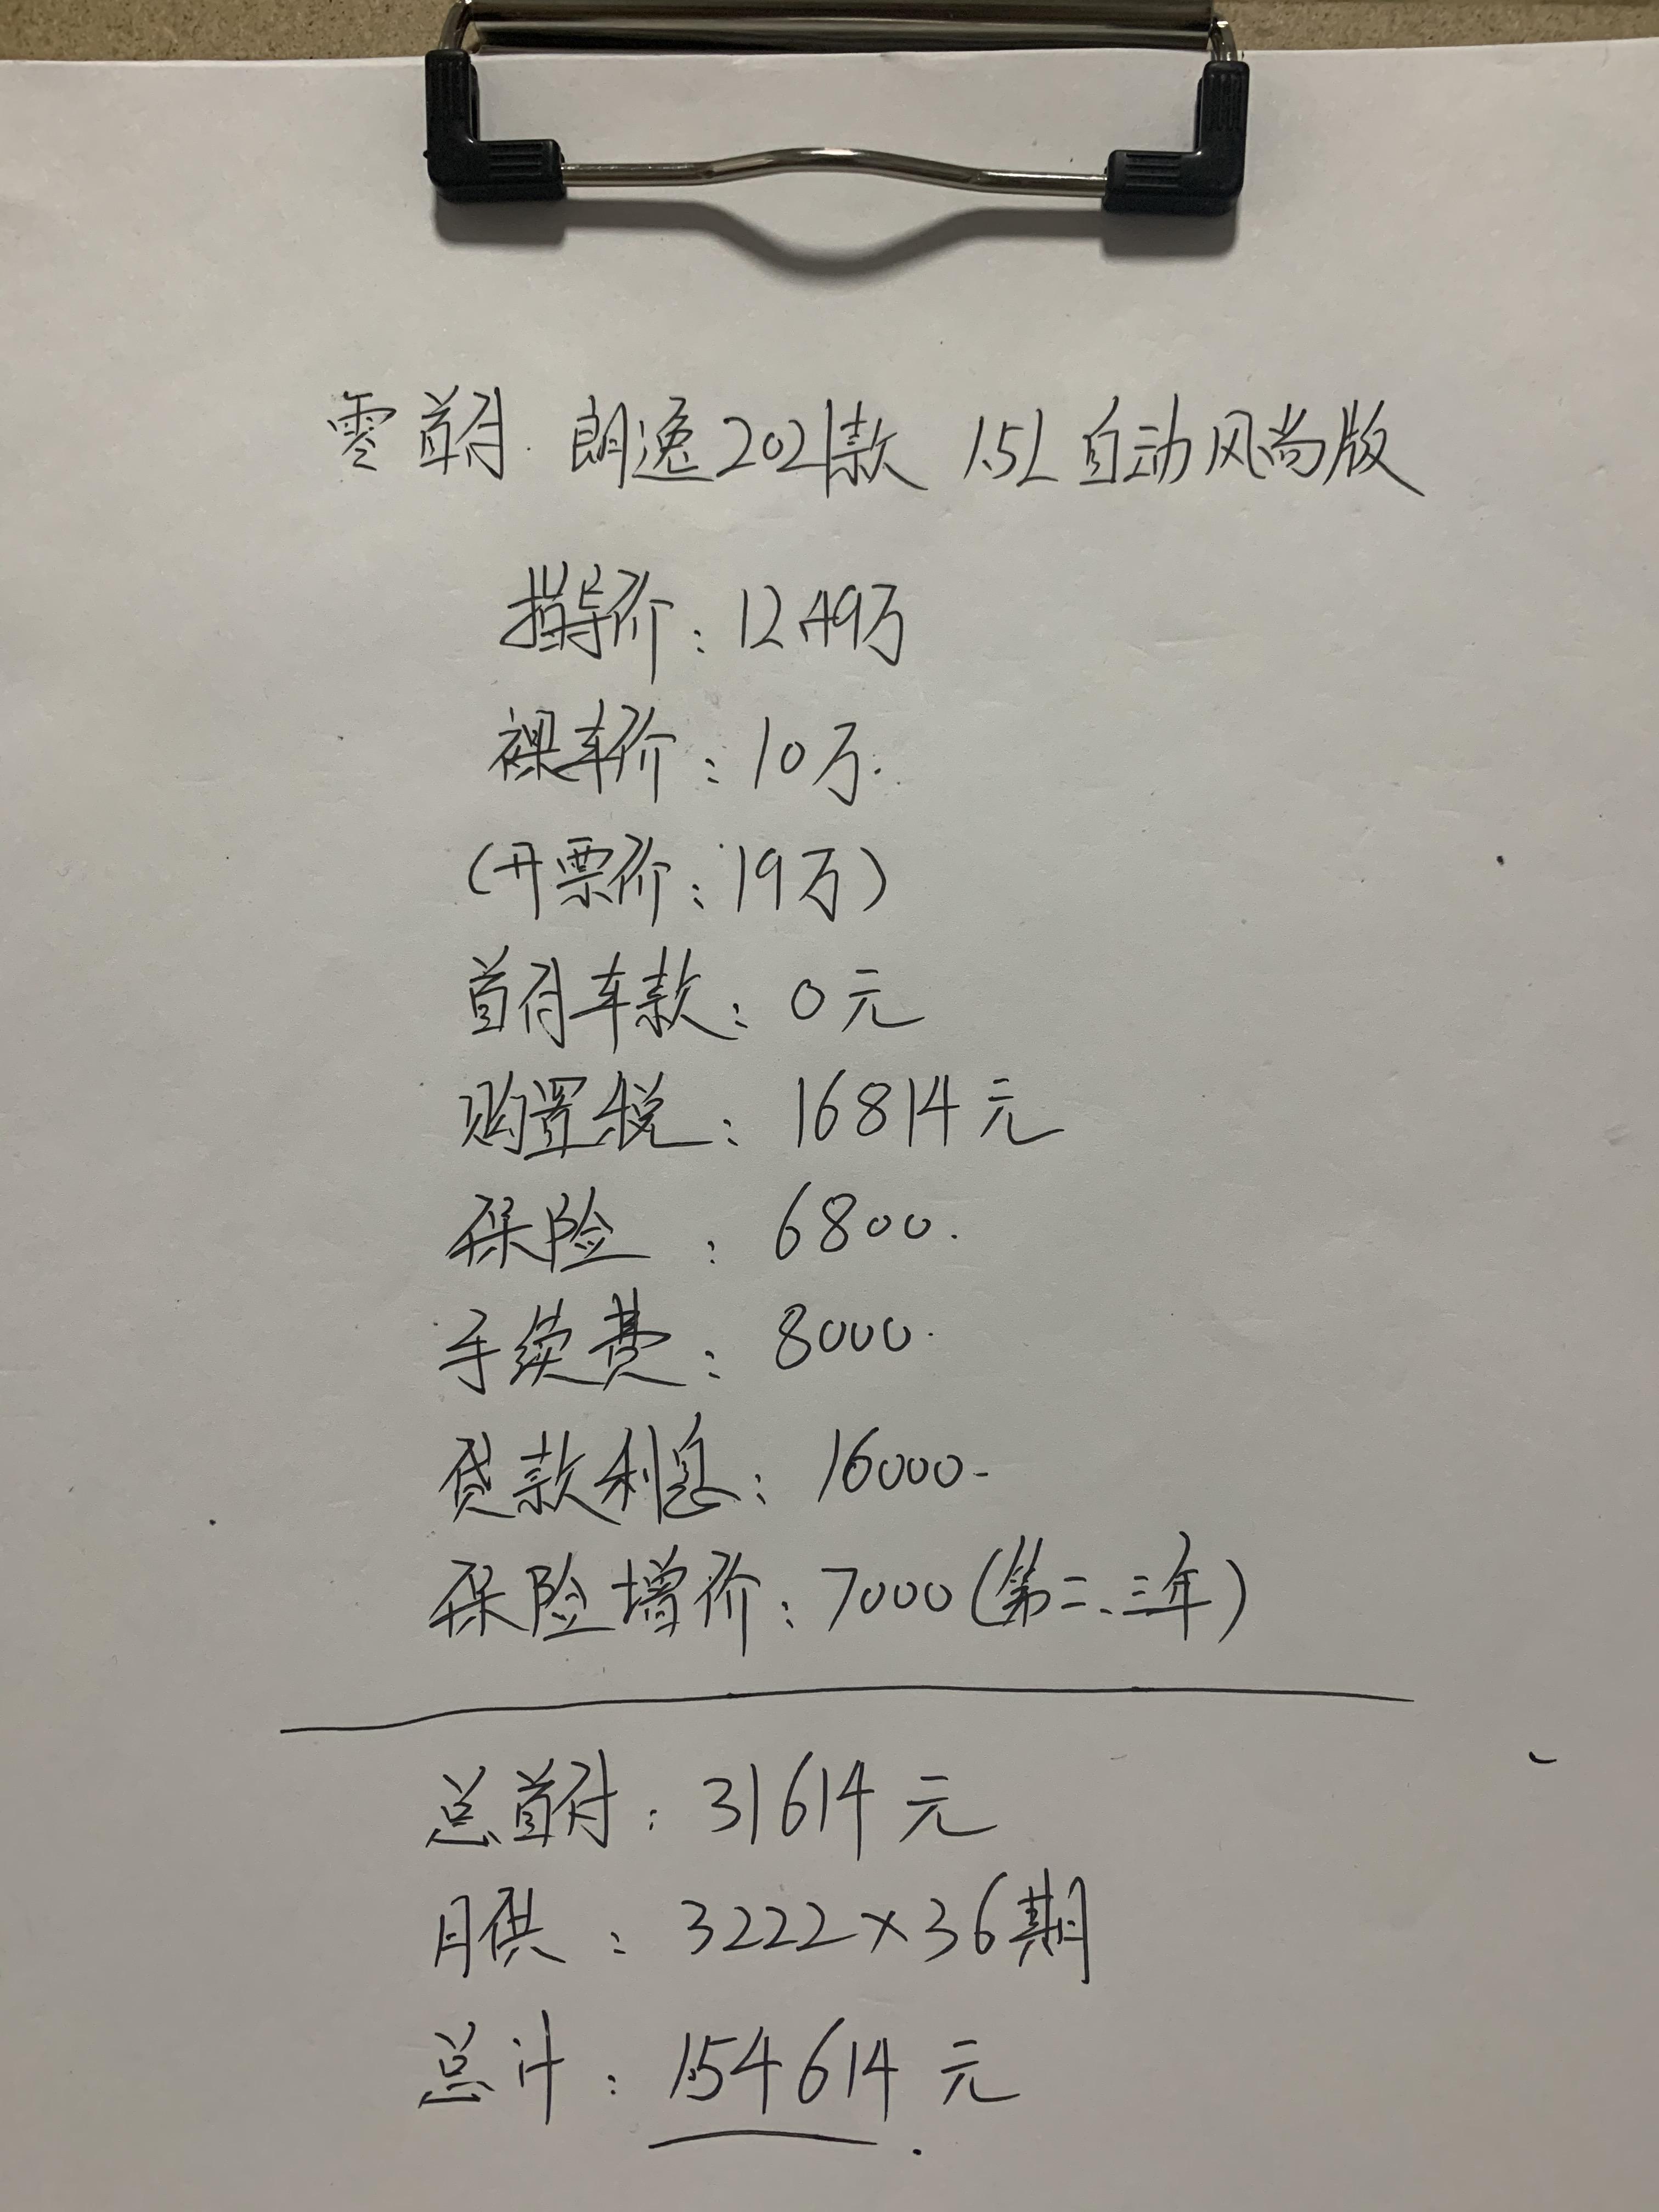 零首付 朗逸2021款 1.5L自动风尚版
指导价：12.49万
裸车价：10万.
（开票价：19万）
首付车款：0元
购置税：16814元
保险：6800.
手续费：8000.
贷款利息：16000-
保险增价：7000（第二、三年）
总首付：31614元
月供：3222×36期
总计：154614元.